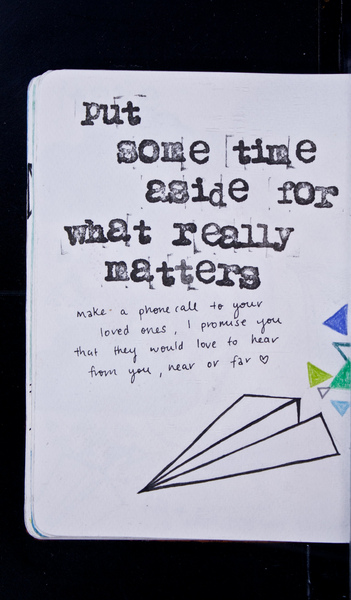 put
some time
aside for
what really
matters
make a phone call to your
loved ones, I promise you
that they would love to hear
from you, near or far ♡